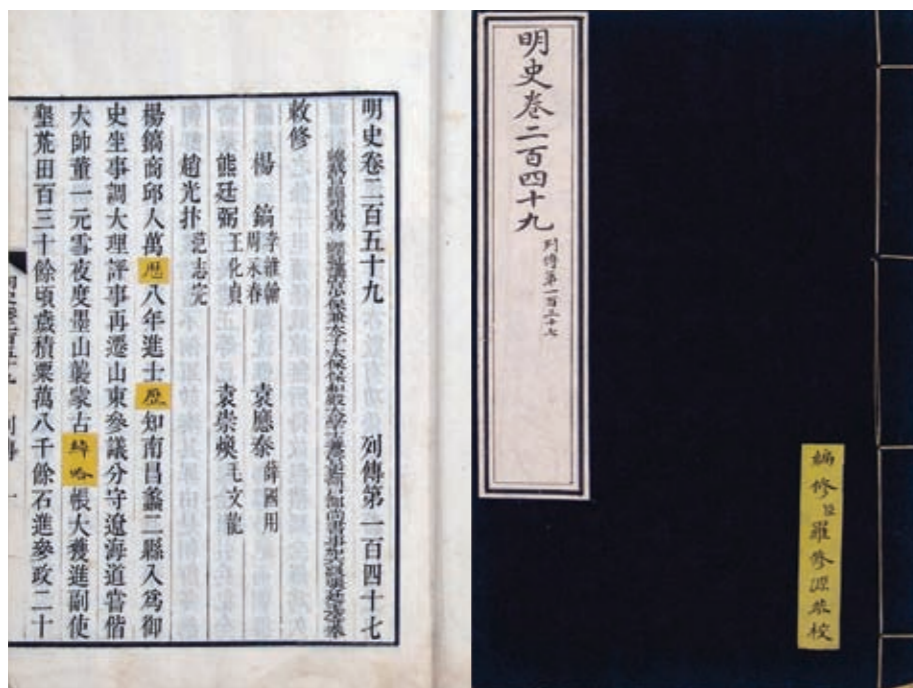 明史卷二百四十九
列傳第一百三十七
編修臣羅修源恭校
明史卷二百五十九 列傳第一百四十七
總裁官總理事務 經筵講官少保兼太子太保保和殿大學士兼管
敕修
楊鎬 李維翰 周永春 袁應泰 薛國用
熊廷弼 王化貞 袁崇煥 毛文龍
趙光抃 范志完
楊鎬商邱人萬厯八年進士歷知南昌蠡二縣入爲御
史坐事調大理評事再遷山東參議分守遼海道嘗偕
大帥董一元雪夜度墨山襲蒙古綽哈帳大獲進副使
墾荒田百三十餘頃歲積粟萬八千餘石進參政二十